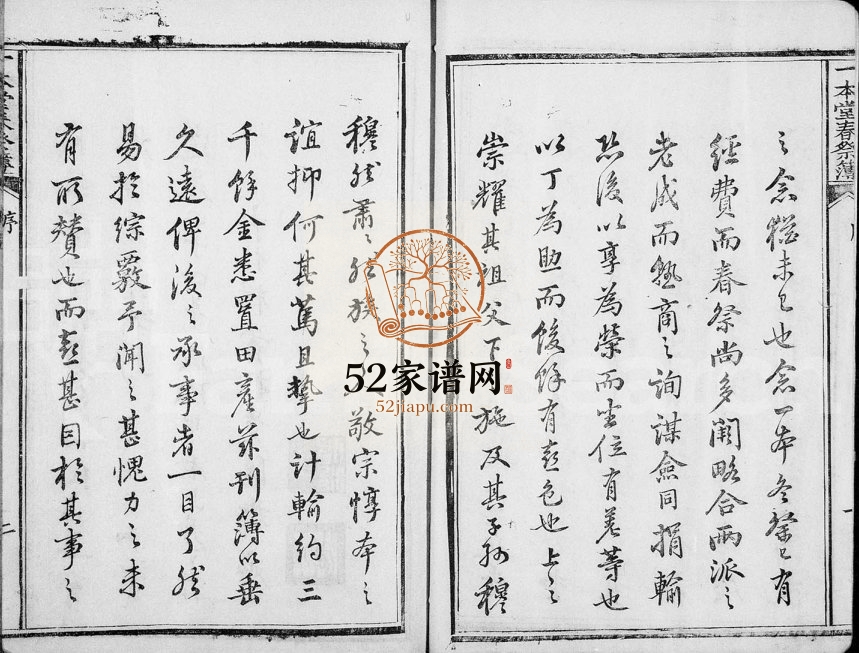 一本堂春祭簿
序
之念猶未已也念一本冬祭已有
經費而春祭尚多闕略合兩派之
老成而熟商之詢謀僉同捐輸
恐後以享為榮而坐位有差等也
以丁為助而餕餘有喜色也上之
崇耀其祖父下 施及其子孫穆
穆然肅肅然族之 敬宗惇本之
誼抑何其篤且摯也計輸約三
千餘金悉置田產茲刊簿以垂
久遠俾後之承事者一目了然
易於綜覈予聞之甚愧力之未
有所贊也而喜甚因於其事之
一本堂春祭簿
序
二
52家谱网
52jiapu.com